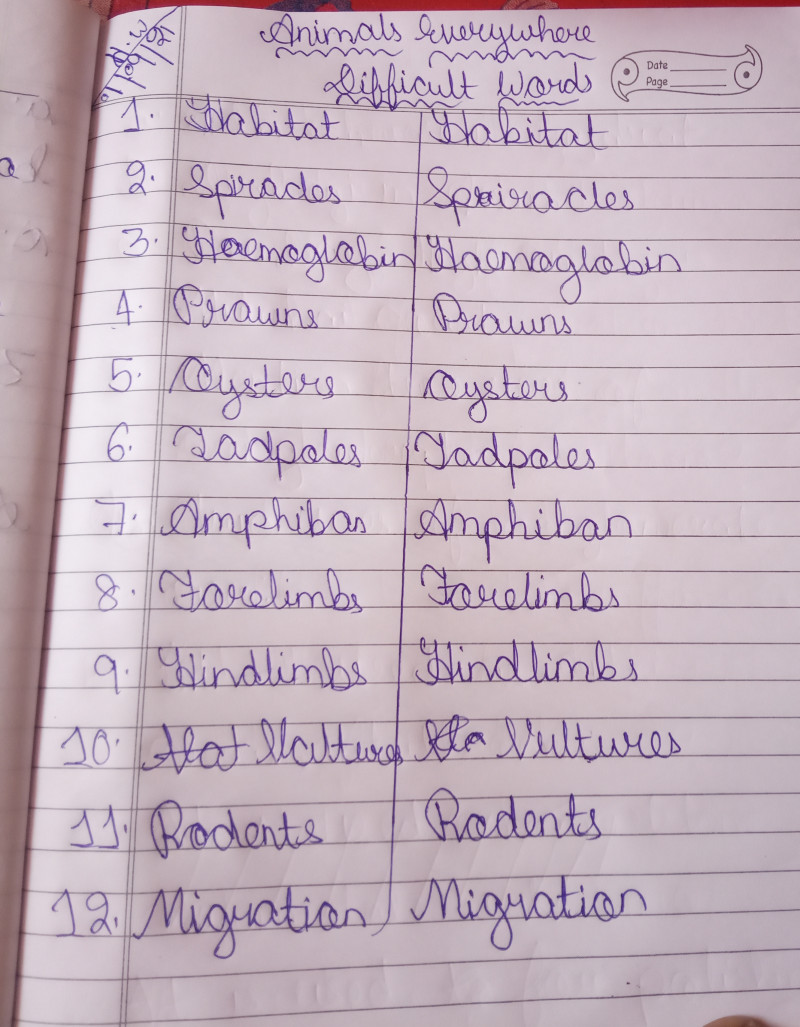 D.W
Animals Everywhere
Difficult Words
Date
Page
1. Habitat Habitat
2. Spirades Spiracles
3. Haemoglobin Haemoglobin
4. Prawns Prawns
5. Oysters Oysters
6. Tadpoles Tadpoles
7. Amphiban Amphiban
8. Forelimbs Forelimbs
9. Hindlimbs Hindlimbs
10. Vultures Vultures
11. Rodents Rodents
12. Migration Migration